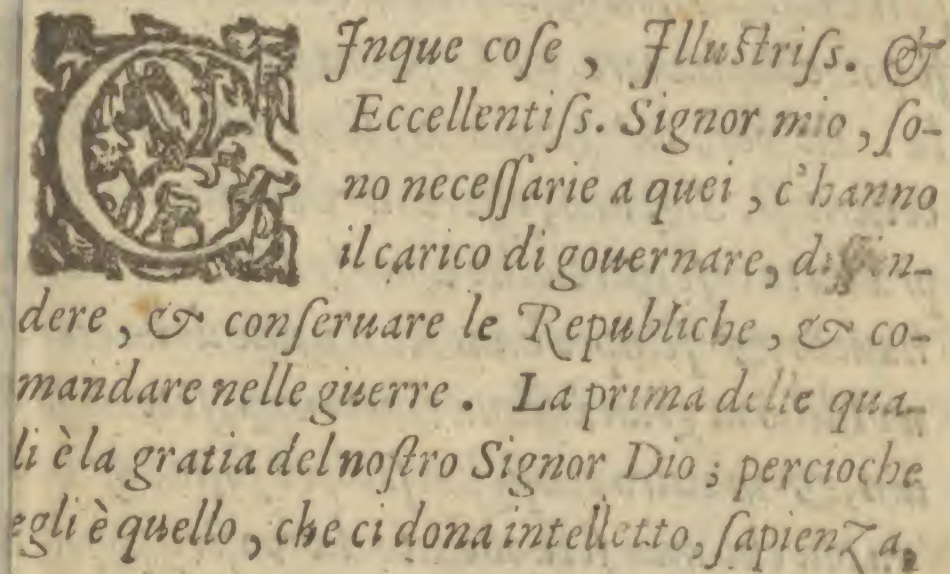 CInque coſe, Illuſtriſs. &
Eccellentiſs. Signor mio, ſo-
no neceſſarie a quei, c'hanno
il carico di gouernare, diffen-
dere, & conſeruare le Republiche, & co-
mandare nelle guerre. La prima delle qua-
li è la gratia del noſtro Signor Dio; percioche
egli è quello, che ci dona intelletto, ſapienza,